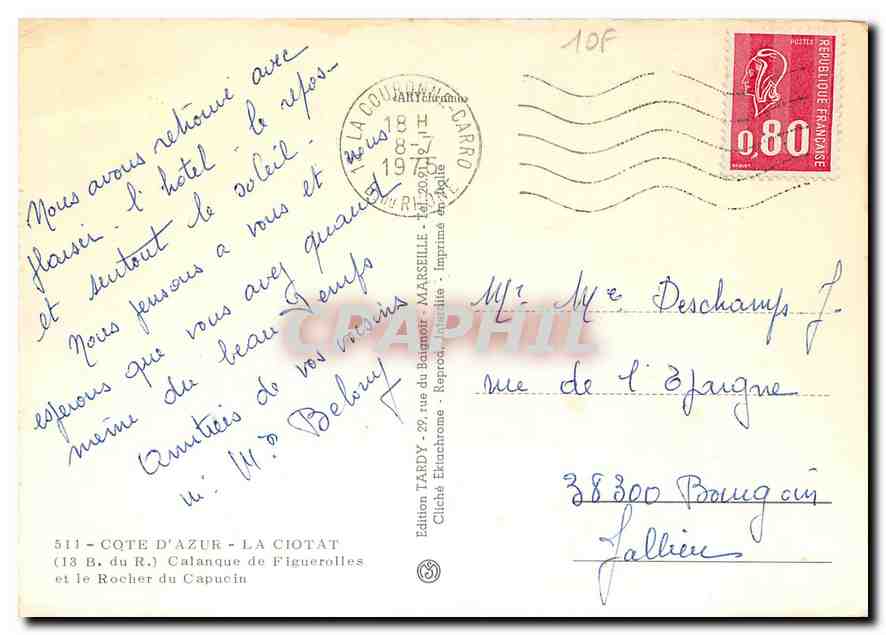 10F
POSTES
REPUBLIQUE FRANÇAISE
0,80
LA COURONNE-CARRO
18 H
8-7
1975
Bˢ du RHONE
Nous avons retrouvé avec
plaisir l'hôtel - le repos -
et surtout le soleil -
Nous pensons a vous et nous
esperons que vous avez quand
même du beau temps
Amitiés de vos voisins
mr Me
Mr Me Deschamps J.
rue de l'Epargne
38300 Bourgoin
Jallieu
Edition TARDY - 29, rue du Baignoir - MARSEILLE - Tél. 20.91
Cliché Ektachrome - Reprod. Interdite - Imprimé en Italie
CPAPHIL
511 - COTE D'AZUR - LA CIOTAT
(13 B. du R.) Calanque de Figuerolles
et le Rocher du Capucin